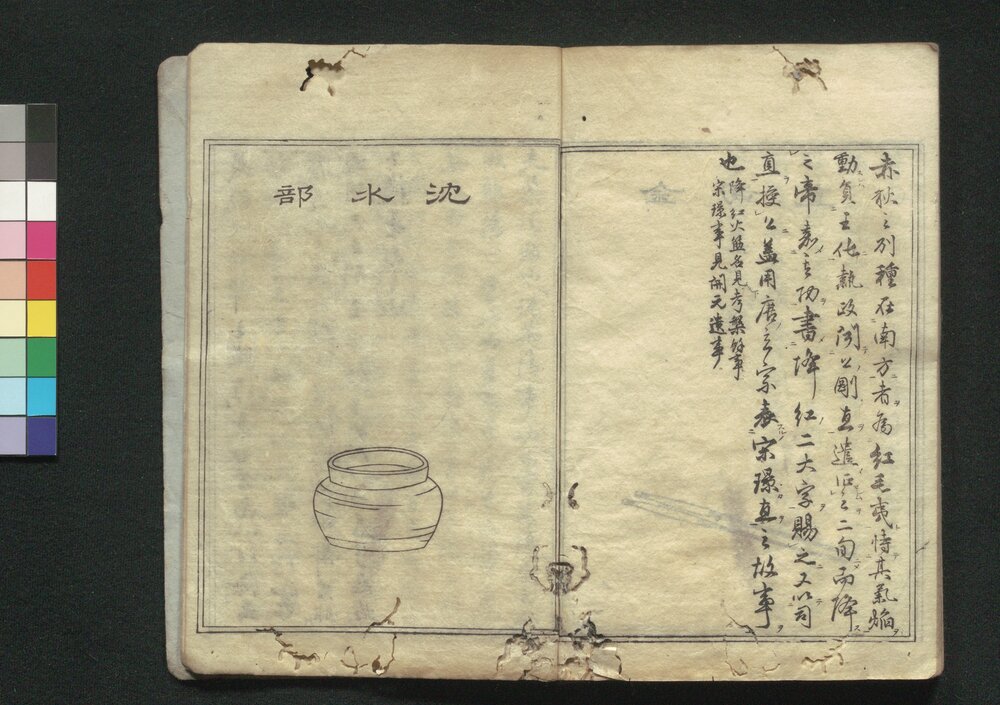 赤狄之別種在南方者為紅毛或恃其氣焔
動負王化執政聞公剛直遣正之二旬而降
之帝嘉之功書降紅二大字賜之又以司
直授公蓋用唐玄宗表宋璟直之故事
也
降紅火盆名見考槃餘事
宋璟事見開元遺事
沈水部